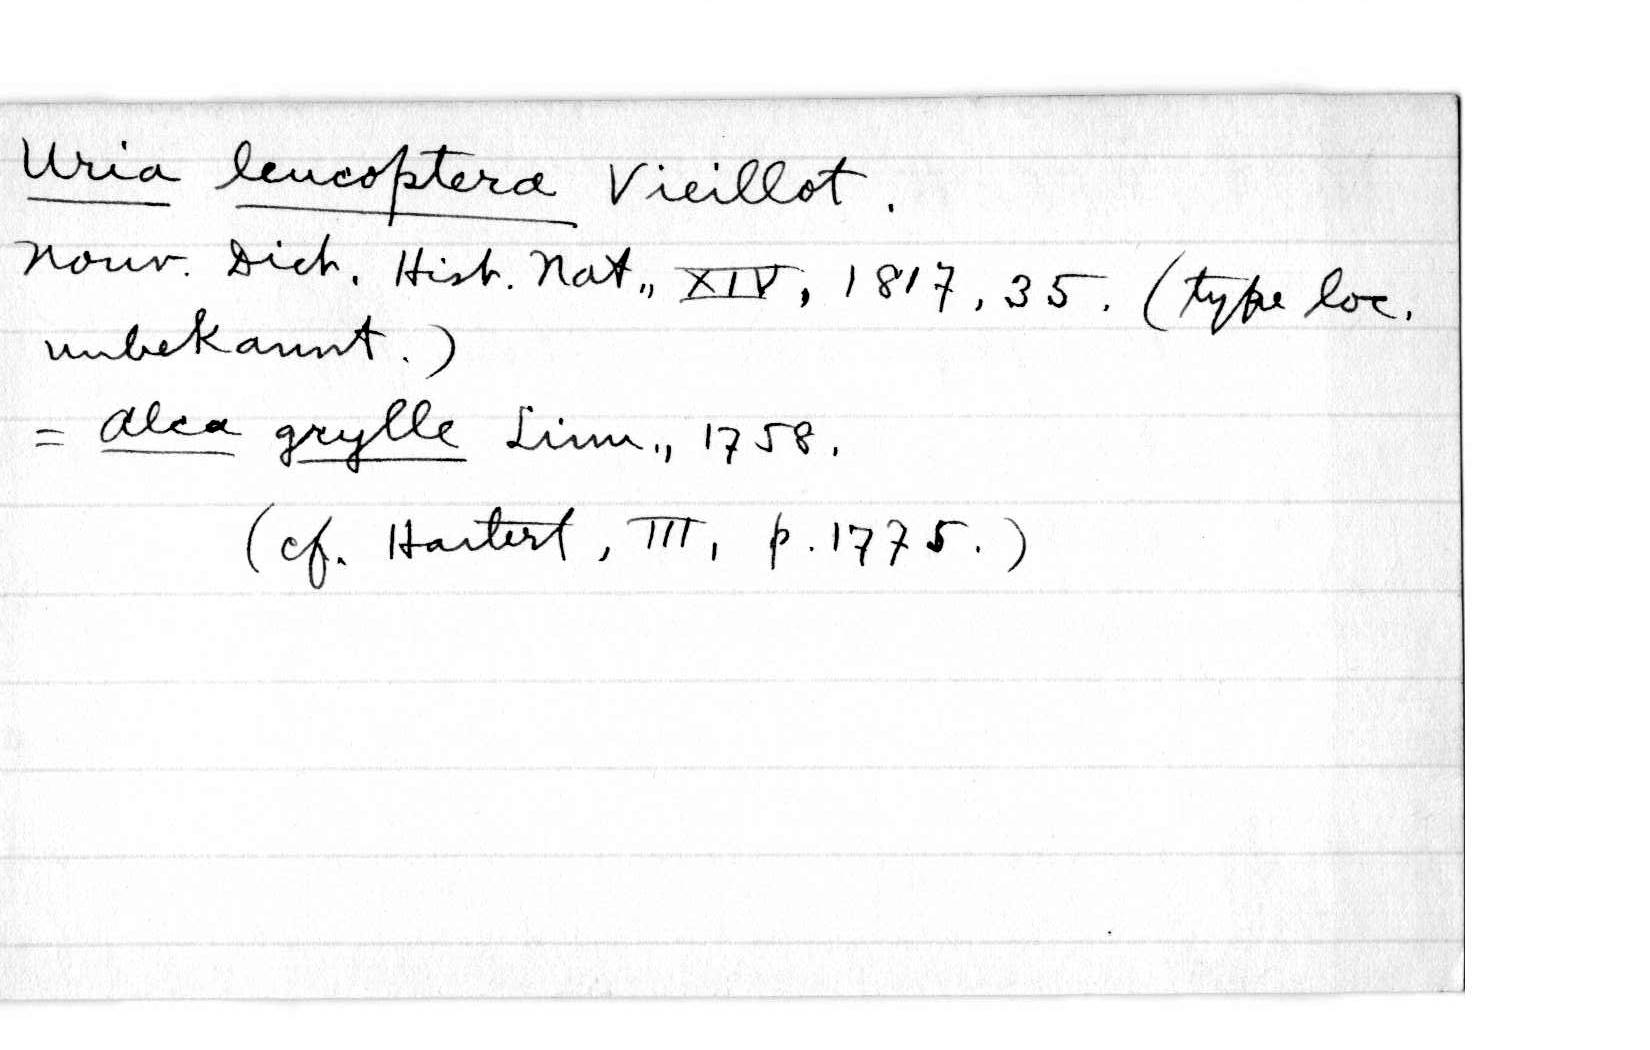 Uria leucoptera Vieillot.
Nouv. Dict. Hist. Nat., XIV, 1817, 35. (type loc.
unbekannt.)
= Alca grylle Linn., 1758.
(cf. Hartert, III, p. 1775.)